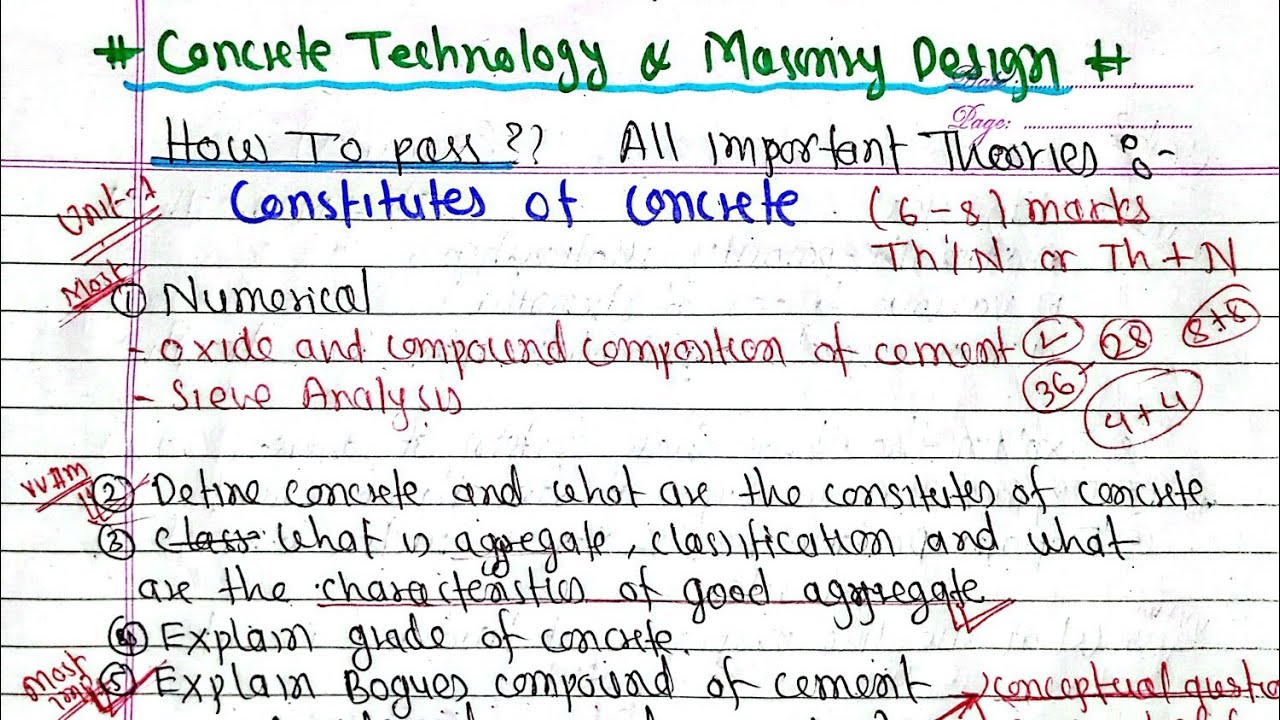 # Concrete Technology & Masonry Design #
Date:
Page:
How To pass ?? All Important Theories :-
Unit-1
Constitutes of concrete (6-8) marks
Th/N or Th + N
Most
① Numerical
- Oxide and compound composition of cement 28 8+8
- Sieve Analysis 36 4+4
VVIM
② Define concrete and what are the consitutes of concrete.
③ class What is aggregate, classification and what
are the characteristics of good aggregate
④ Explain grade of concrete.
Most
⑤ Explain Bogues compound of cement → conceptual questio